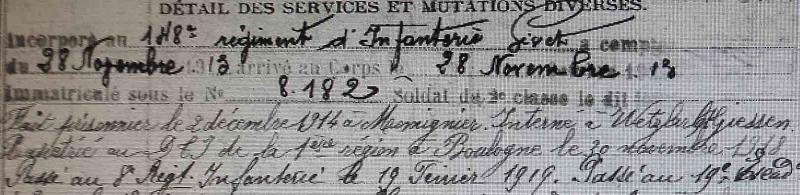 DÉTAIL DES SERVICES ET MUTATIONS DIVERSES.
Incorporé au 148e régiment d'Infanterie Givet à compt
du 28 Novembre 1913 arrivé au Corps le 28 Novembre 1913
Immatriculé sous le No 8.182 Soldat de 2e classe le dit
Fait prisonnier le 2 décembre 1914 à Interné à Wetzlar Giessen
Rapatrié au de la 1ère région à Boulogne le 30 novembre 1918
Passé au 8e Régt Infanterie le 19 Février 1919. Passé au 19e